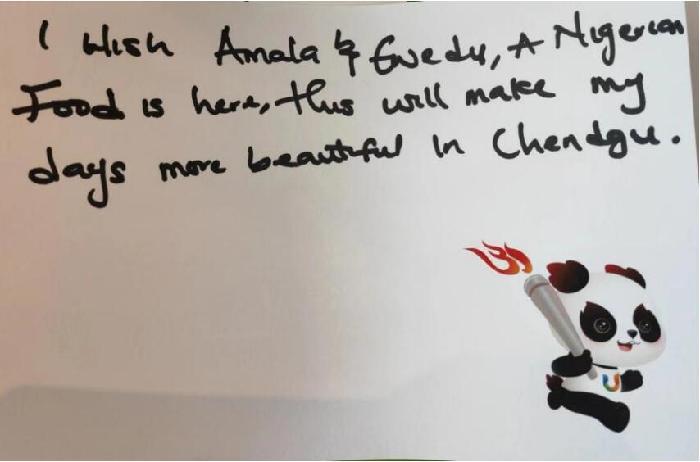 I Wish Amala & Ewedu, A Nigerian
Food is here, thus will make my
days more beautiful in Chendgu.